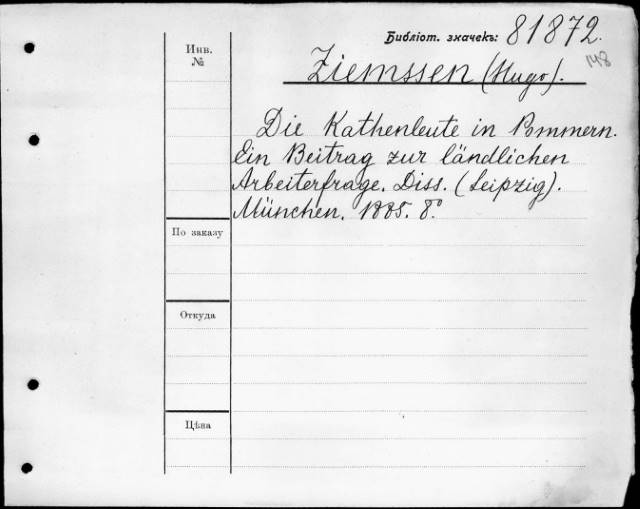 Библіот. значекъ: 81872.
148
Инв.
№
Ziemssen (Hugo).
Die Kathenleute in Pommern.
Ein Beitrag zur ländlichen
Arbeiterfrage. Diss. (Leipzig).
München. 1885. 8°
По заказу
Откуда
Цѣна